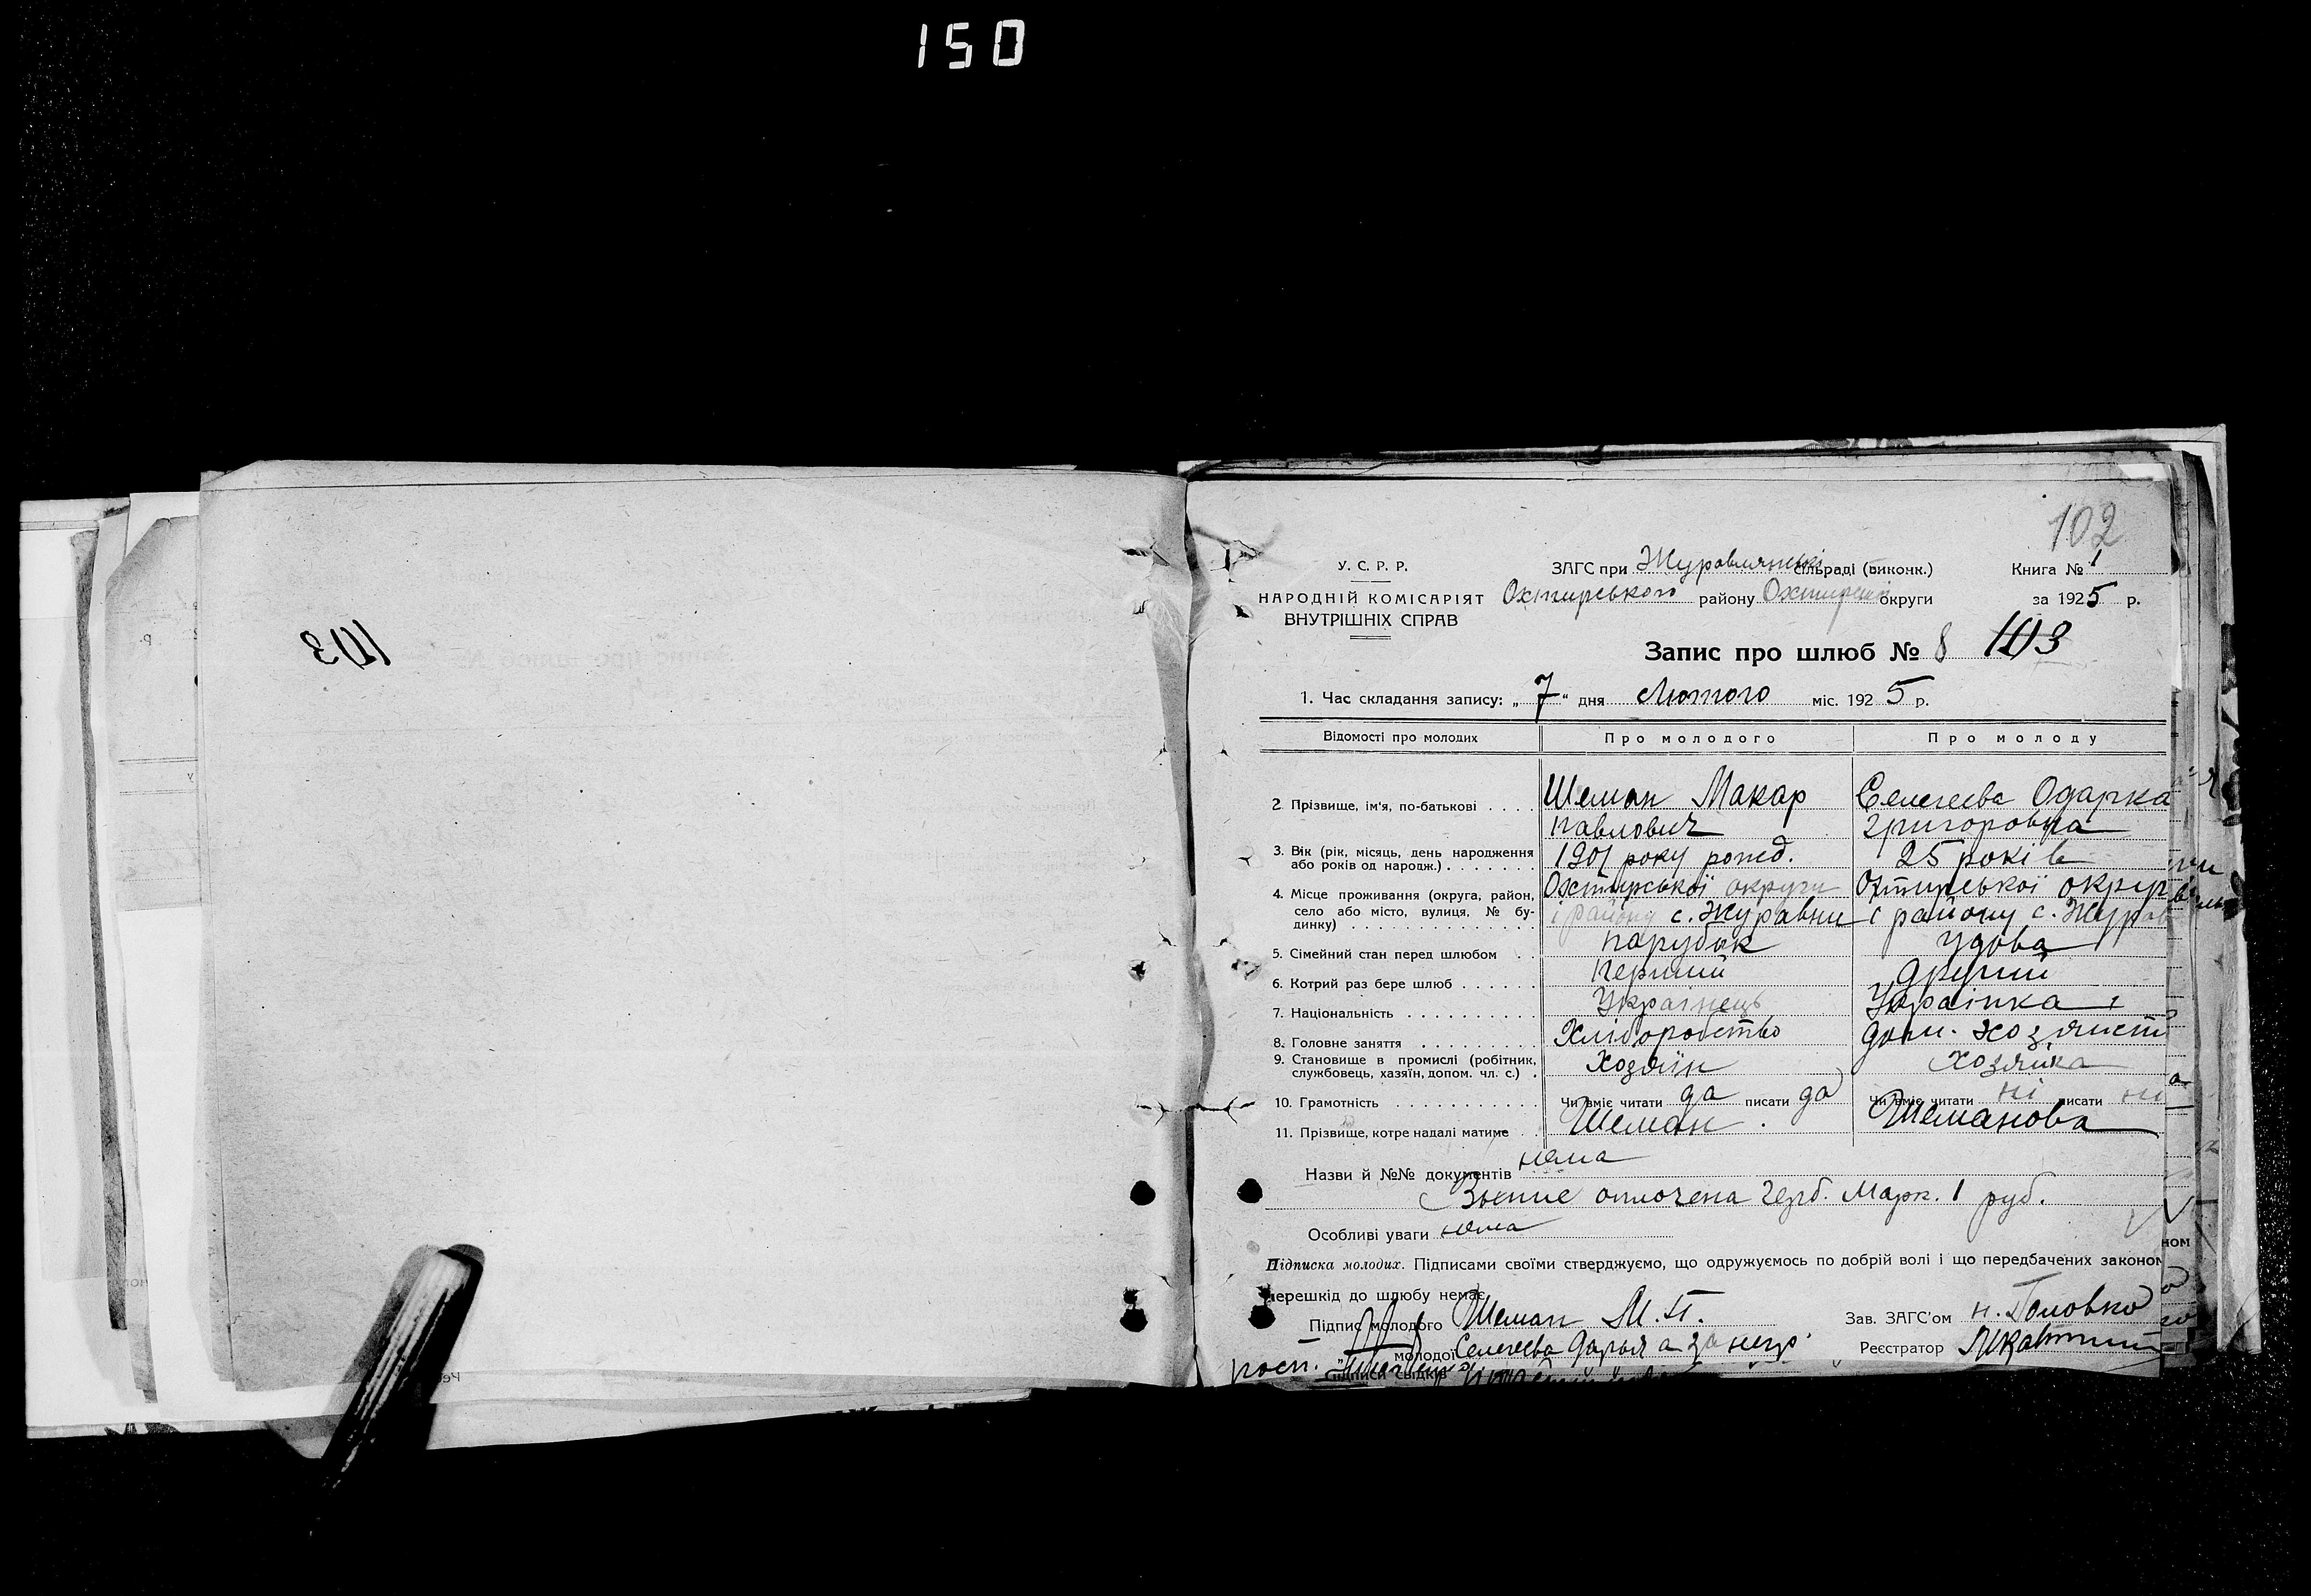 150
103
102
У. С. Р. Р.
НАРОДНІЙ КОМІСАРІЯТ
ВНУТРІШНІХ СПРАВ
ЗАГС при Журавлянські сільраді (виконк.)
Книга № 1
Охтирського району Охтирськ округи
за 1925 р.
Запис про шлюб № 8 103
1. Час складання запису: „7“ дня Лютого міс. 1925 р.
Відомості про молодих Про молодого Про молоду
2. Прізвище, ім'я, по-батькові . . . . Шеман Макар Селегеева Одарка
Павлович Григоровна
3. Вік (рік, місяць, день народження 1901 року рожд. 25 років
або років од народж.) . . . . . . .
4. Місце проживання (округа, район, Охтирської округи Охтирської округ
село або місто, вулиця, № бу- і району с. Журавни і району с. Журав
динку) . . . . . . . . . . . . . .
5. Сімейний стан перед шлюбом . . парубок удова
6. Котрий раз бере шлюб . . . . . . Перший Другий
7. Національність . . . . . . . . . . Українець Українка
8. Головне заняття . . . . . . . . . Хліборобство дом. хозяист
9. Становище в промислі (робітник, Хозяїн Хозяйка
службовець, хазяїн, допом. чл. с.) .
10. Грамотність . . . . . . . . . . . Чи вміє читати да писати да Чи вміє читати ні писати ні
11. Прізвище, котре надалі матиме . . Шеман . Шеманова
Назви й №№ документів нема
оплочена герб. Марк. 1 руб.
Особливі уваги нема
Підписка молодих. Підписами своїми стверджуємо, що одружуємось по добрій волі і що передбачених законом
перешкід до шлюбу немає
Підпис молодого Шеман М. П.
Зав. ЗАГС'ом Н. Головко
„ молодої Селегеева Дарья а за негр.
Реєстратор
росп.
Підписи свідків